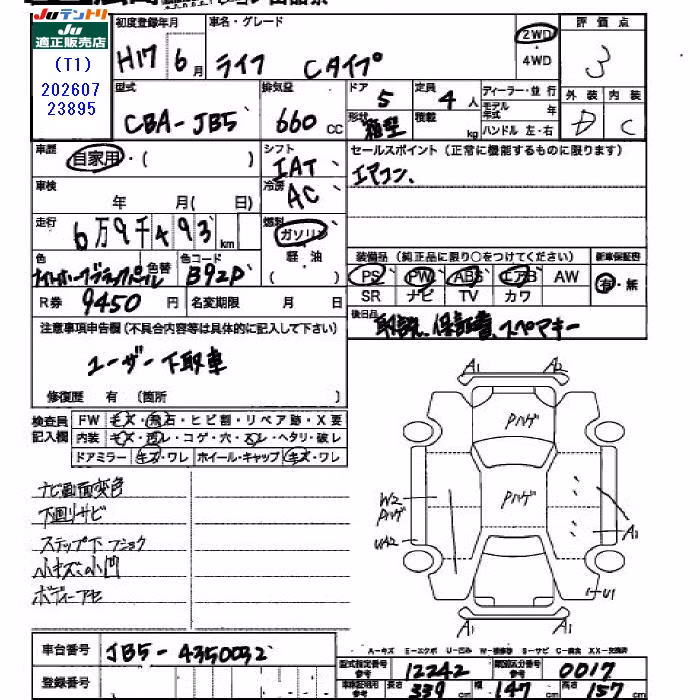 Juテントリ
Ju
適正販売店
(T1)
202607
23895
初度登録年月
H17年6月
車名・グレード
ライフ Cタイプ
2WD
・
4WD
評価点
3
型式
CBA-JB5
排気量
660 CC
ドア
5
定員
4人
ディーラー・並行
モデル年式
形状
箱型
積載
kg
ハンドル 左・右
外装
D
内装
C
車歴
自家用・( )
シフト
IAT
セールスポイント(正常に機能するものに限ります)
エアコン、
車検
年 月( 日)
冷房
AC
走行
6万9千493km
燃料
ガソリン
軽・油
( )
色
色替
色コード
B92P
装備品(純正品に限り○をつけてください)
新車保証書
PS PW ABS エアB AW
SR ナビ TV カワ
有・無
R券 9450 円
名変期限 月 日
後日品
取説、保証書、スペアキー
注意事項申告欄(不具合内容等は具体的に記入して下さい)
ユーザー下取車
修復歴 有 (箇所 )
検査員
記入欄
FW キズ・飛石・ヒビ割・リペア跡・X要
内装 ・コゲ・穴・ ・ヘタリ・破レ
ドアミラー キズ・ワレ ホイール・キャップ キズ・ワレ
ナビ画面変色
下廻りサビ
ステップ下フショク
小キズ小凹
ボディーアセ
A1
A2
Pハゲ
Pハゲ
W2
Pハゲ
UA2
A1
U1
A1
A1
A-キズ E-エクボ U-凹み W-補修跡 S-サビ C-腐食 XX-交換済
車台番号
JB5-4350032
登録番号
型式指定番号
参考
12242
類別区分番号
参考
0017
長さ 339 cm
幅 147 cm
高さ 157 cm